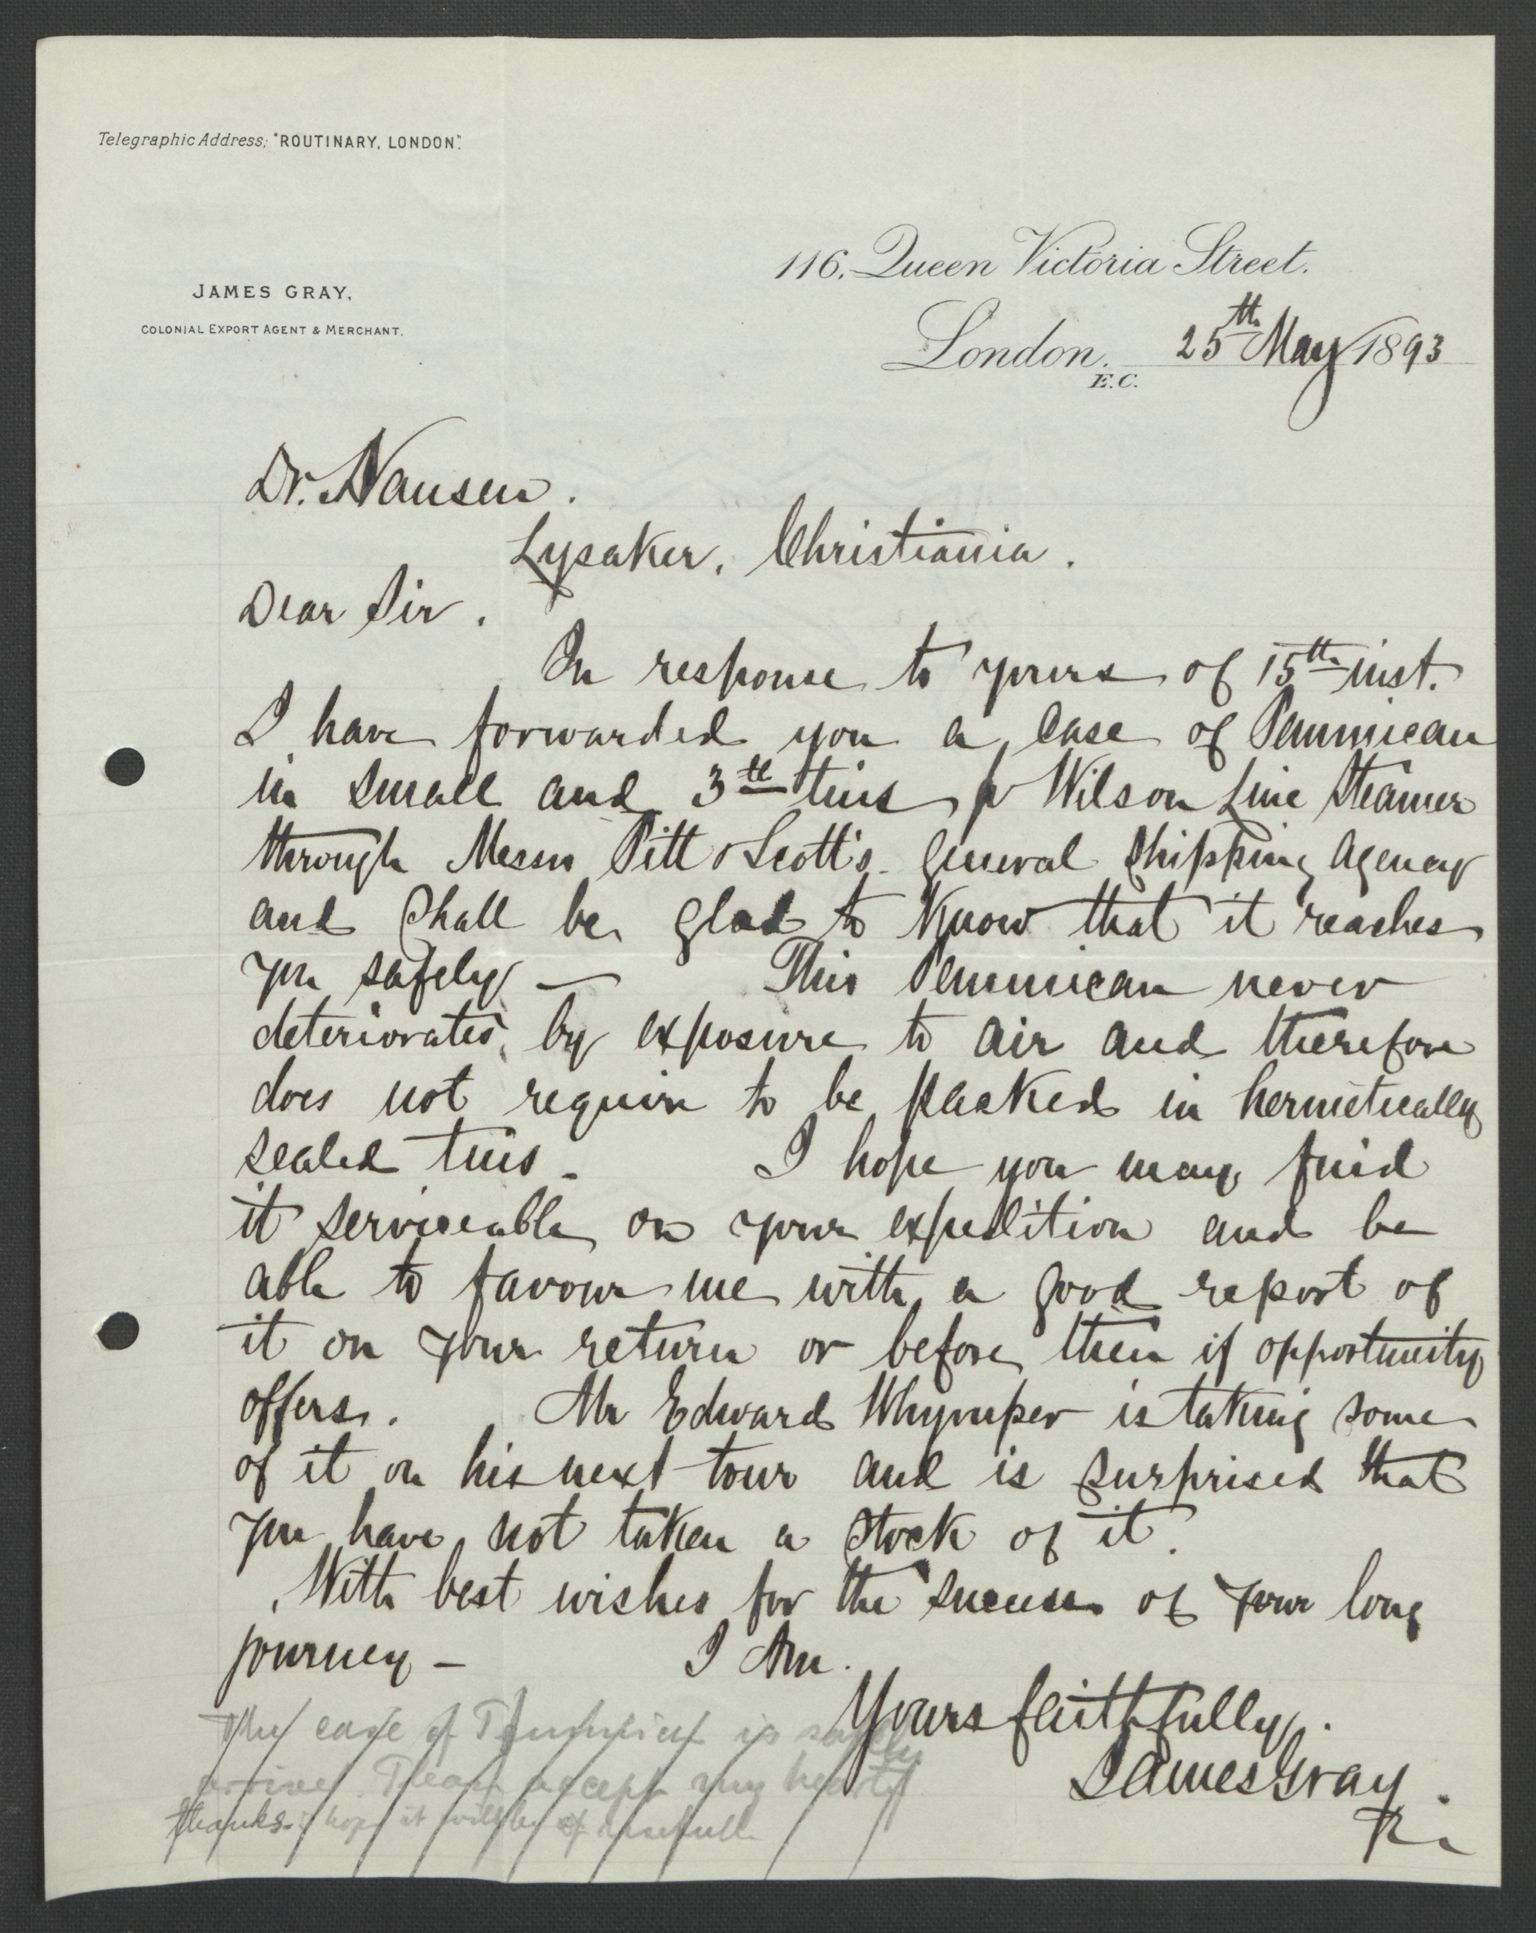 Telegraphic Address; "ROUTINARY, LONDON".
116, Queen Victoria Street.
JAMES GRAY,
COLONIAL EXPORT AGENT & MERCHANT.
London. 25th May 1893
E.C.
Dr. Nansen.
Lysaker, Christiania.
Dear Sir.
In response to yours of 15th inst.
I have forwarded you a case of Pemmican
in small and 3 lb tins p Wilson Line Steamer
through Messrs Pitt & Scott's General Shipping Agency
and shall be glad to know that it reaches
you safely — This Pemmican never
deteriorates by exposure to air and therefore
does not require to be packed in hermetically
sealed tins - I hope you may find
it serviceable on your expedition and be
able to favour me with a good report of
it on your return or before then if opportunity
offers. Mr Edward Whymper is taking some
of it on his next tour and is surprised that
you have not taken a stock of it.
With best wishes for the success of your long
journey - I Am.
Yours faithfully.
James Gray.
The case of is safely
arrived Please accept my hearty
thanks. I hope it will be usefull